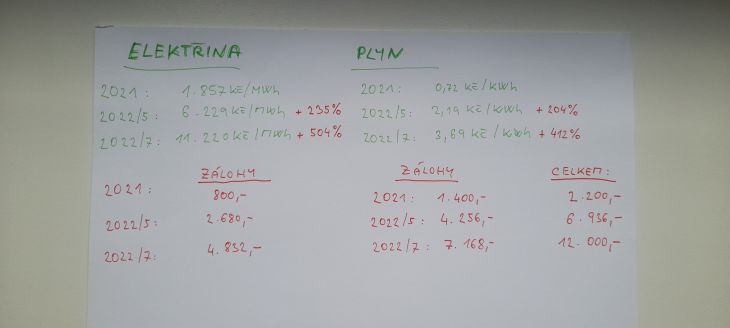 ELEKTŘINA
2021: 1.857 KČ/MWh
2022/5: 6.229 KČ/MWh + 235%
2022/7: 11.220 KČ/MWh + 504%
PLYN
2021: 0,72 KČ/KWh
2022/5: 2,19 KČ/KWh + 204%
2022/7: 3,69 KČ/KWh + 412%
ZÁLOHY
2021: 800,-
2022/5: 2.680,-
2022/7: 4.832,-
ZÁLOHY
2021: 1.400,-
2022/5: 4.256,-
2022/7: 7.168,-
CELKEM:
2.200,-
6.936,-
12.000,-